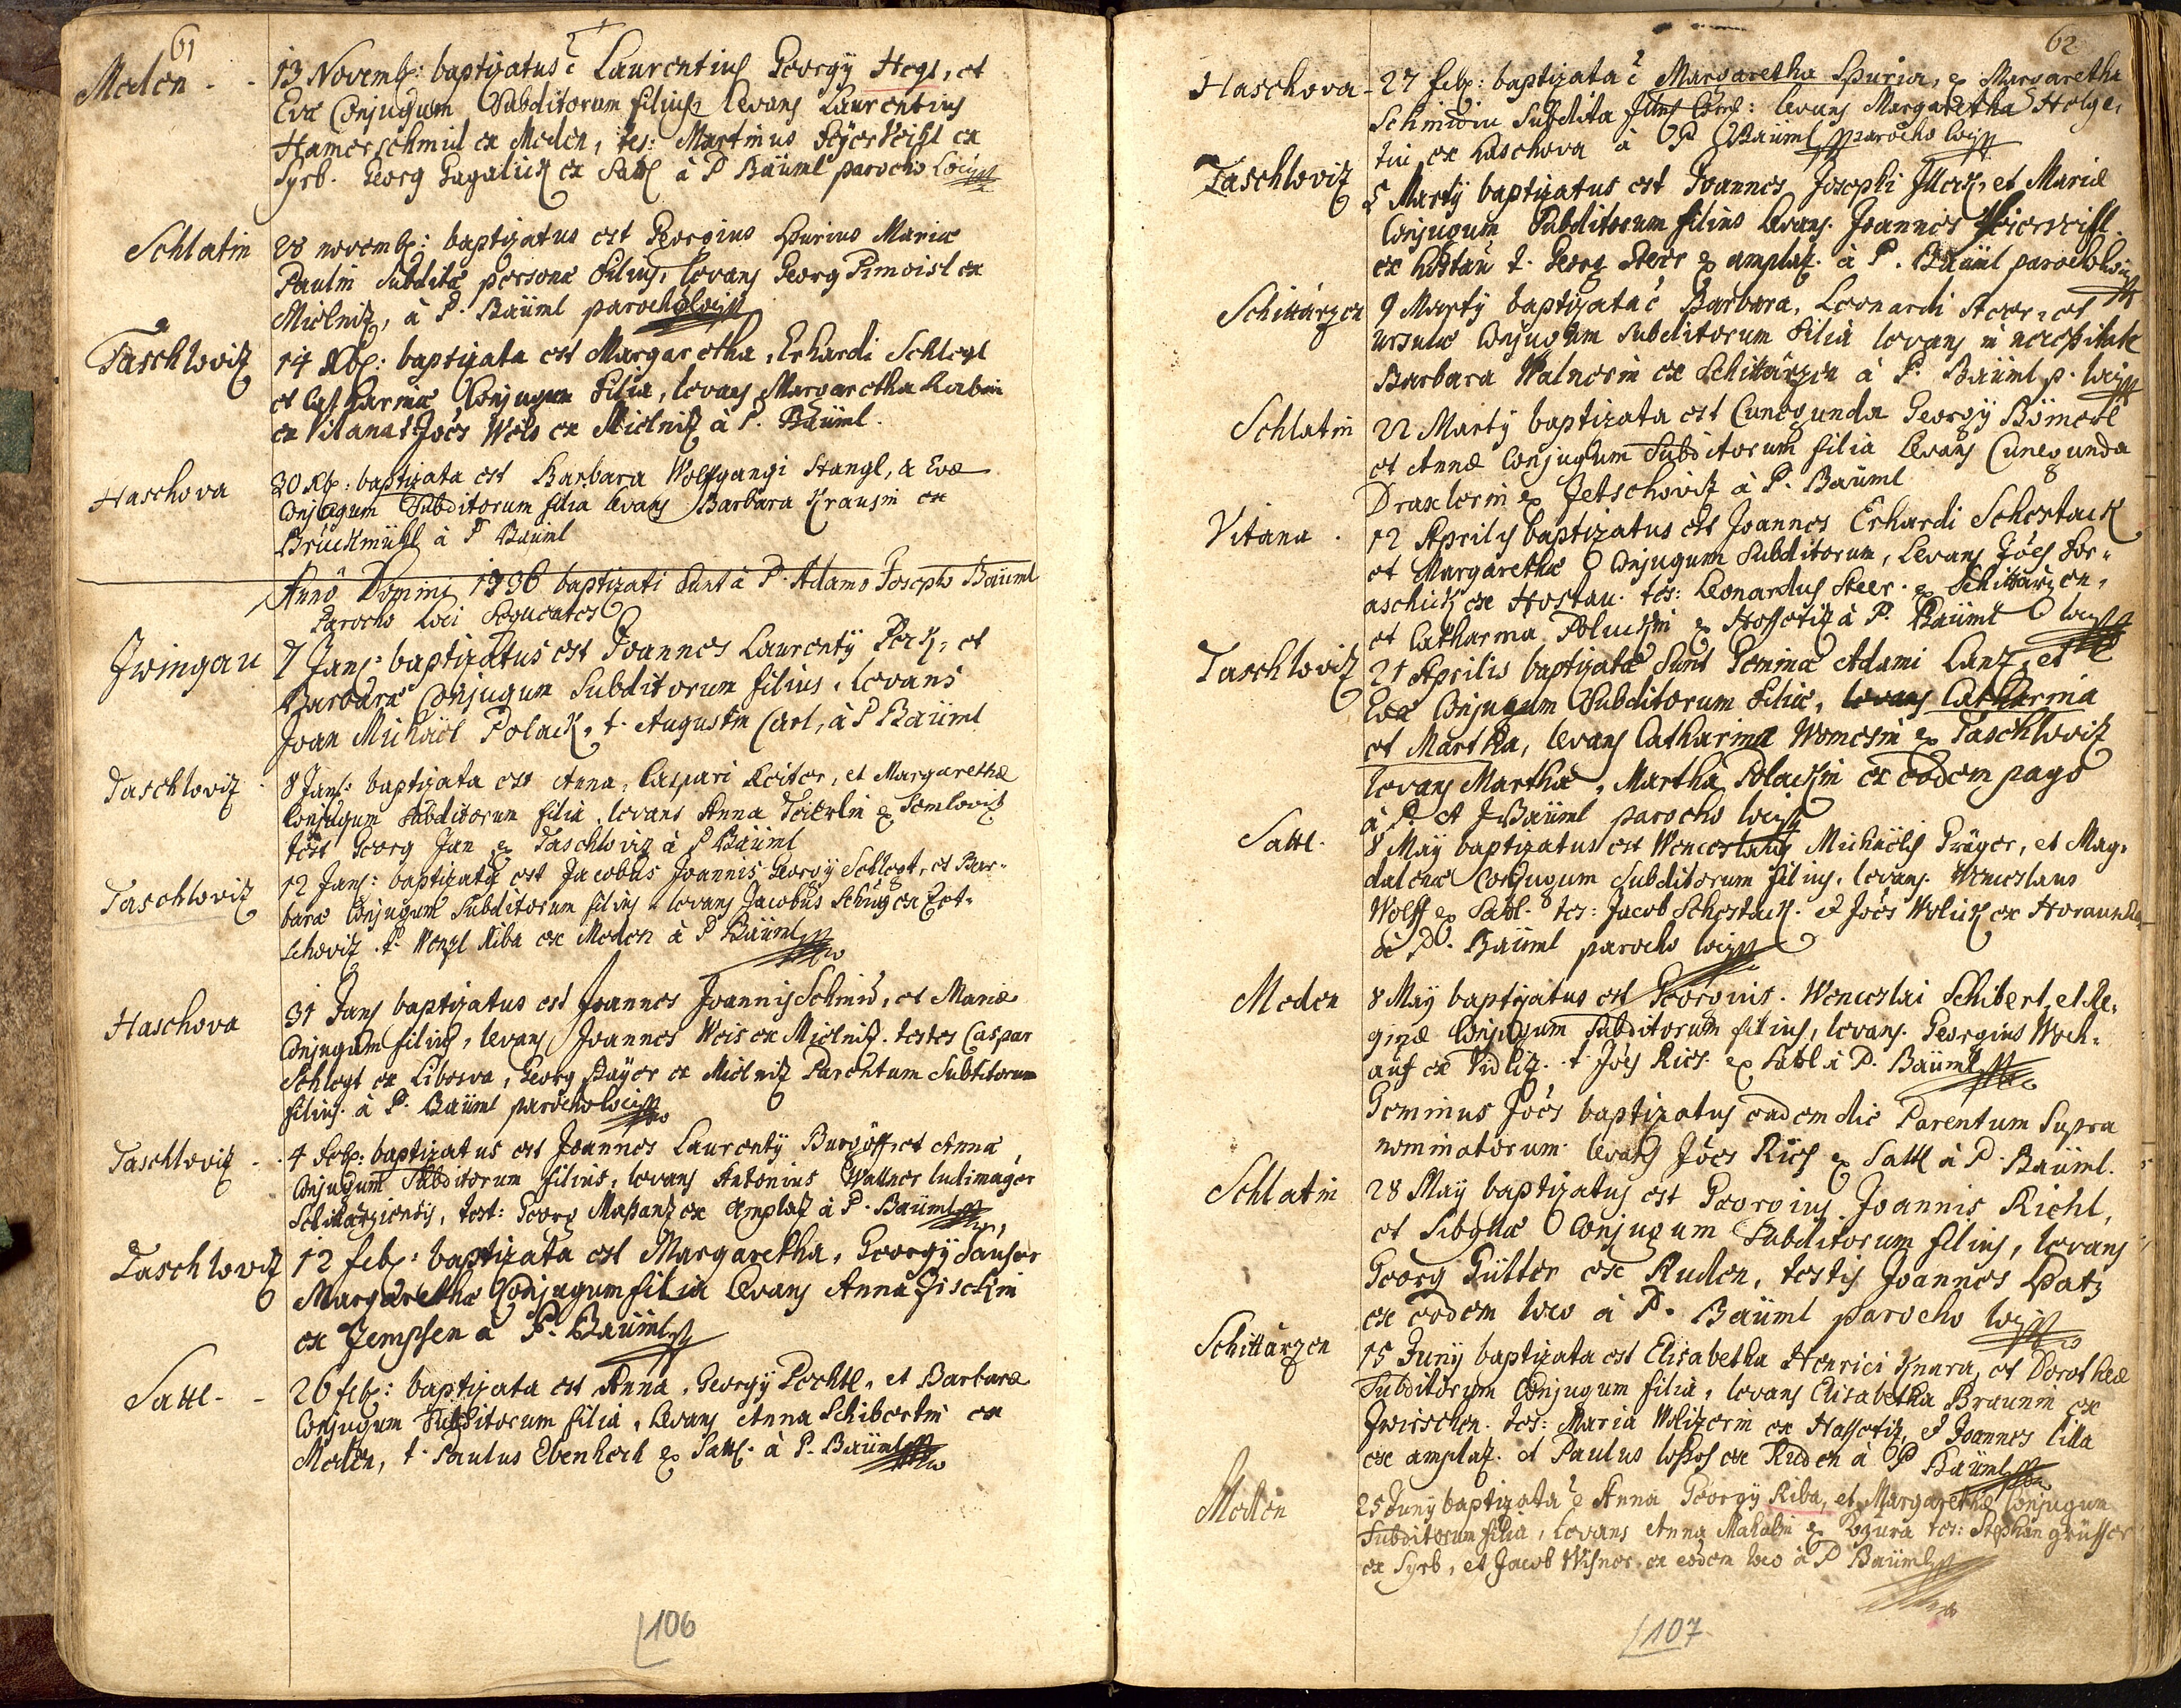 61
Meden - - 13 Novemb: baptizatus ē Laurentius Georgÿ Hegl, et
Evæ Conjugum Subditorum filius, levans Laurentius
Hamerschmid ex Meden, tes: Martinus
Syrb. Georg ex Sattl à P Bäüml parocho Loci
Schlatin 28 novemb: baptizatus est Georgius Spurius Mariæ
Paulin subditæ personæ filius, levans Georg ex
Mielnitz, à P. Bäüml parocho loci
Taschlovitz 14 Xb: baptizata est Margaretha, Erhardi Schlegl
et Catharinæ Conjugum filia, levans Margaretha Rabin
ex Vitana t Joës Weis ex Mielnitz à P. Bäüml.
Haschova 30 Xb: baptizata est Barbara Wolfgangi Stangl, & Evæ
Conjugum Subditorum filia levans Barbara Krausin ex
Bruckmühl à P Bäüml
Annô Domini 1736 baptizati sunt à P. Adamo Josepho Bäüml
Parocho Loci Sequentes
Zwingau 7 Jan: baptizatus est Joannes Laurentÿ Peck, et
Barbaræ Conjugum Subditorum filius, levans
Joan Michäel Polack, t. Augustin Carl, à P Bäüml
Taschlovitz 8 Jan: baptizata est Anna, Caspari Reiter, et Margarethæ
Conjugum Subditorum filia, levans Anna ex Semlovitz
test Georg Jan ex Taschlovitz à P Bäüml
Taschlovitz 12 Jan: baptizatus est Jacobus Joannis Georgÿ Schlegt, et Bar-
baræ Conjugum Subditorum filius levans Jacobus Schug ex Zet-
schovitz t. Wenzl Riba ex Meden à P Bäüml
Haschova 31 Jan baptizatus est Joannes Joannis Schmid, et Mariæ
Conjugum filius, levans Joannes Weis ex Mielnitz. testes Caspar
Schlegt ex Liboswa, Georg Bayer ex Mielnitz Parentum Subditorum
filius. à P. Bäüml parocho loci
Taschlovitz - 4 Feb: baptizatus est Joannes Laurentÿ Burgöff, et Annæ
Conjugum Subditorum filius, levans Antonius Wallner ludimager
Schittarziensis, test: Georg ex Amplatz à P. Bäüml
Taschlovitz 12 feb: baptizata est Margaretha, Georgÿ Tauser
Margarethæ Conjugum filia levans Anna Fisckin
ex Zempsen à P. Bäüml
Sattl - - 26 feb: baptizata est Anna, Georgÿ Pechtl, et Barbaræ
Conjugum Subditorum filia, levans Anna Schibertin ex
Meden, t. Paulus Ebenhech ex Sattl. à P. Bäüml
106
62
Haschova - 27 feb: baptizata ē Margaretha Spuria, ex Margaretha
Schmidin Subdita levans Margaretha
ex Haschova à P Bäüml parocho loci
Taschlovitz 5 Martÿ baptizatus est Joannes Josephi et Mariæ
Conjugum Subditorum filius levans. Joannes
ex Hostau t. Georg Steer ex amplatz. à P. Bäüml parocho loci
Schittarzen 9 Martÿ baptizata ē Barbara, Leonardi Steer, et
Ursulæ Conjugum Subditorum filia levans in necessitate
Barbara Walnerin ex Schittarzen à P. Bäüml p. loci
Schlatin 22 Martÿ baptizata est Cunegunda Georgÿ Bömerl
et Annæ Conjugum Subditorum filia levans Cunegunda
Draxlerin ex Zetschovitz à P. Bäüml
Vitana . 12 Aprilis baptizatus est Joannes Erhardi Schestack
et Margarethæ Conjugum Subditorum, levans Joës For-
aschick ex Hostau. tes: Leonardus Steer ex Schittarzen,
et Catharina Poluckin ex Hossotitz à P. Bäüml loci
Taschlovitz 21 Aprilis baptizatæ sunt Geminæ Adami Lanz, et
Evæ Conjugum Subditorum filiæ, levans Catharina
et Martha, levans Catharina ex Taschlovitz
levans Martha, Martha Polackin ex eodem pago
à P. A J Bäüml parocho loci
Sattl. 8 Maÿ baptizatus est Wenceslaus Michäelis Präger, et Mag-
dalenæ Conjugum Subditorum filius, levans. Wenceslaus
Wolff ex Sattl. tes: Jacob Schestack. et Joës Wolick ex
à P. Bäüml parocho loci
Meden 8 Maÿ baptizatus est Georgius. Wenceslai Schibert, et Re-
ginæ Conjugum Subditorum filius, levans. Georgius Woch-
auf ex Vidlitz. t Joës Ries ex Sattl à P. Bäüml
Geminus Joës baptizatus eadem die Parentum Supra
nominatorum levans Joës Ries ex Sattl à P. Bäüml.
Schlatin 28 Maÿ baptizatus est Georgius Joannis Richl,
et Sibyllæ Conjugum Subditorum filius, levans
Georg Gütter ex Ruden, testis Joannes Patz
ex eodem loco à P. Bäüml parocho loci
Schittarzen 15 Junÿ baptizata est Elisabetha Henrici Knara, et Dorotheæ
Subditorum Conjugum filia, levans Elisabetha Braunin ex
Zwirschen. tes: Maria Wolitzerin ex Hassotitz, et Joannes Lilla
ex amplatz. et Paulus ex Ruden à P Bäüml
Meden 25 Junÿ baptizata ē Anna Georgÿ Riba, et Margarethæ Conjugum
Subditorum filia, levans Anna Mahalin ex tes: Stephan grüsser
ex Syrb, et Jacob Wisner ex eodem loco à P Bäüml
107